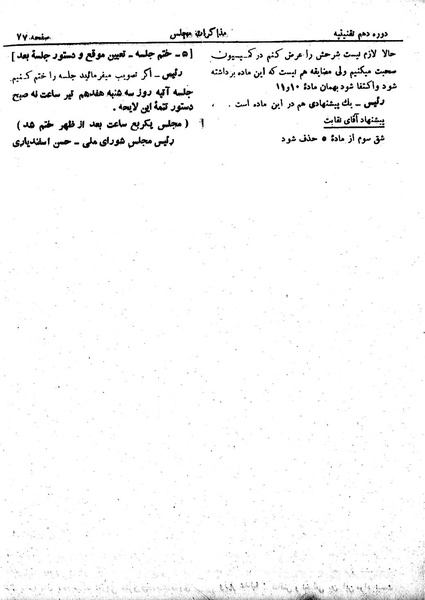 دوره دهم تقنینیه
مذاکرات مجلس
صفحه ۷۷
حالا لازم نیست شرحش را عرض کنم در کمیسیون
صحبت میکنیم ولی مضایقه هم نیست که این ماده برداشته
شود و اکتفا شود بهمان مادهٔ ۱۰ و ۱۱
رئیس - یك پیشنهادی هم در این ماده است .
پیشنهاد آقای نقابت
شق سوم از مادهٔ ۵ حذف شود
[ ۵ - ختم جلسه - تعیین موقع و دستور جلسهٔ بعد ]
رئیس - اگر تصویب میفرمائید جلسه را ختم کنیم
جلسه آتیه روز سه شنبه هفدهم تیر ساعت نه صبح
دستور تتمهٔ این لایحه .
( مجلس یکربع ساعت بعد از ظهر ختم شد )
رئیس مجلس شورای ملی - حسن اسفندیاری